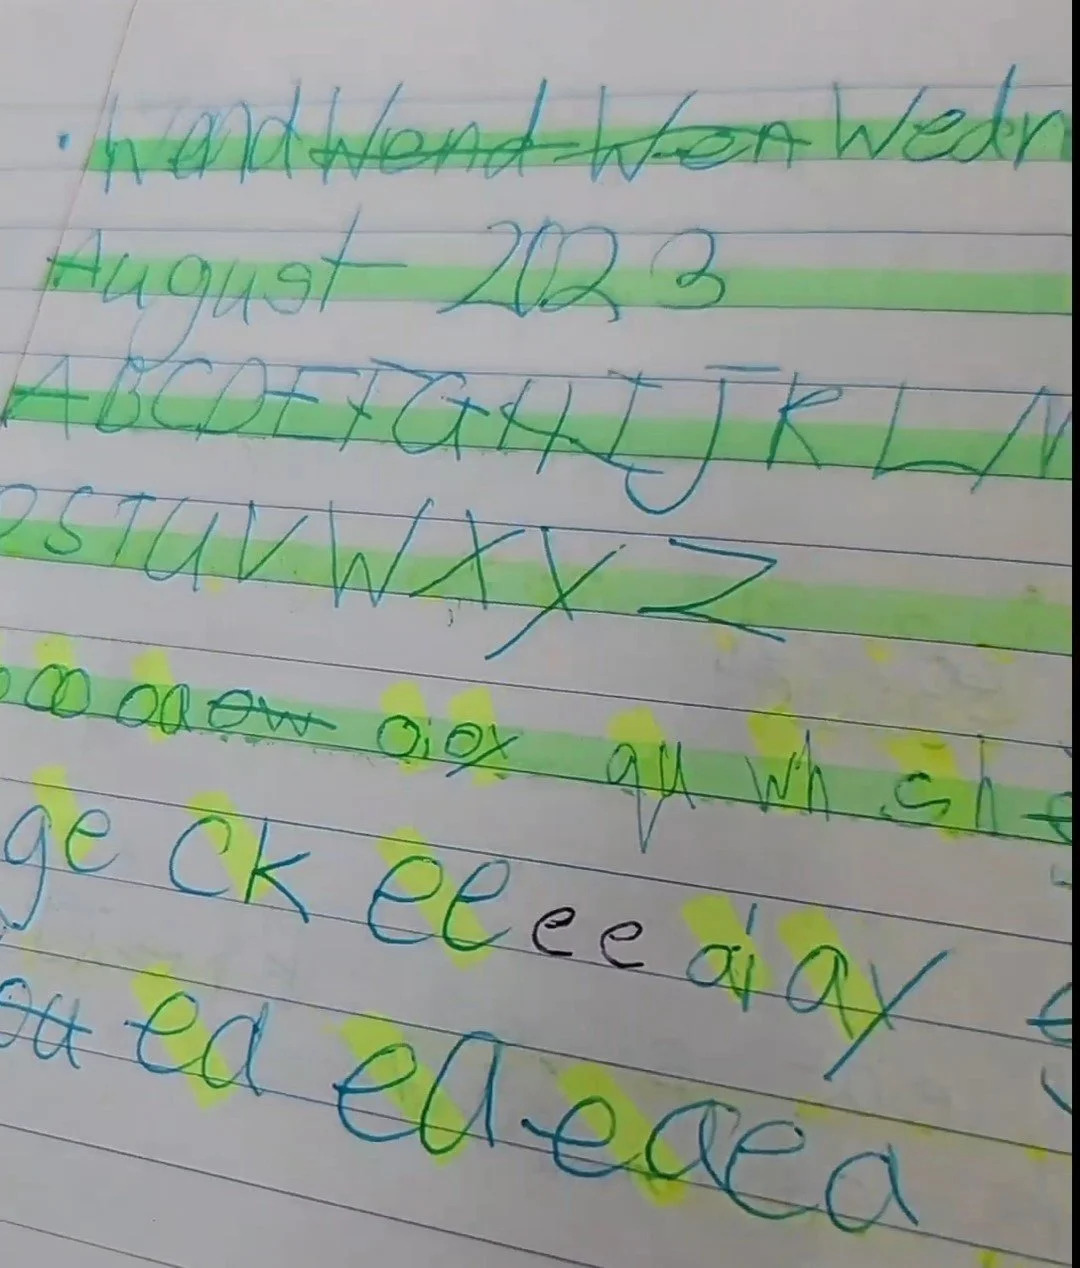 hand Wend Wen Wedn
August 2023
A B C D E F G H I J K L
S T U V W X Y Z
oo oa ow oi ox qu wh sh
ge ck ee e e ai ay
ou ea ea eaea